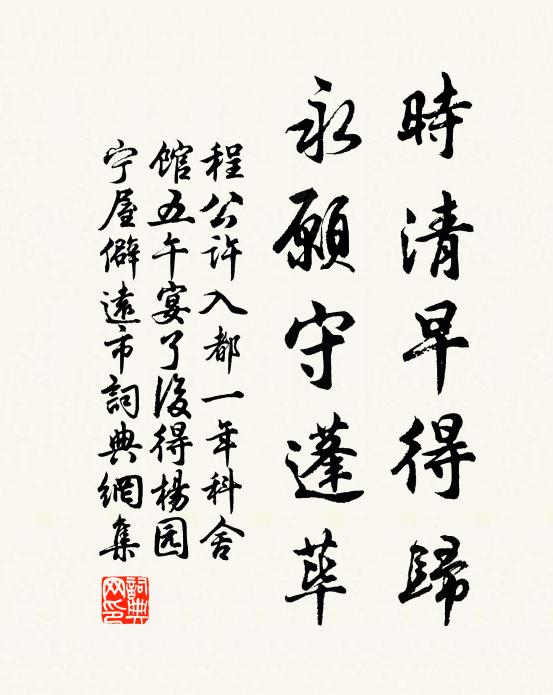 時清早得歸
永願守蓬蓽
程公許入都一年科舍
館五午宴了後得楊园
宁屋僻遠市詞典網集
詞典
网印